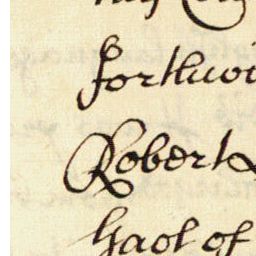 forthwi
Robert
Gaol of